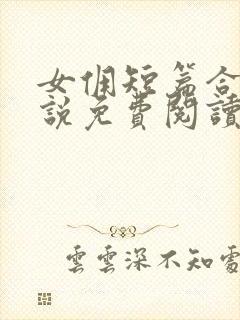 女佣短篇合
說免費閱讀
雲雲深不知處